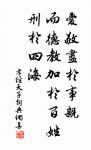 愛敬盡於事親
而德教加於百姓
刑於四海
孝經天子